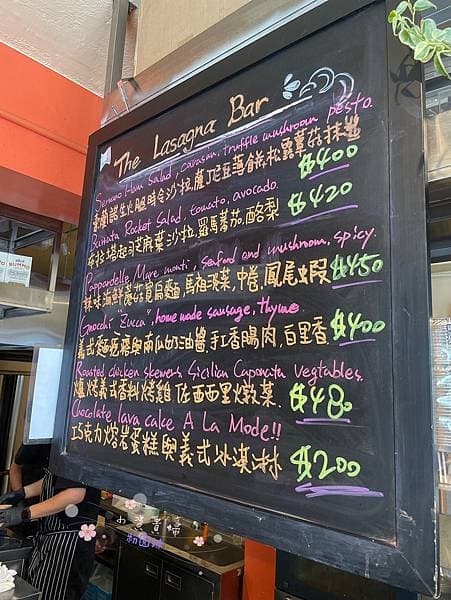 The Lasagna Bar
Serrano Ham Salad, carasau, truffle mushroom pesto.
火腿時令沙拉, 薩丁尼亞薄餅, 松露蘑菇抹醬
$400
Burrata Rocket Salad, tomato, avocado.
布拉塔起司芝麻葉沙拉. 羅馬蕃茄. 酪梨
$420
Pappardelle Mare monti, seafood and mushroom, spicy.
辣味海鮮蘑菇寬扁麵, 馬祖淡菜, 中卷, 鳳尾蝦
$450
Gnocchi "Zucca", home made sausage, thyme.
義式麵疙瘩與南瓜奶油醬. 手工香腸肉, 百里香
$400
Roasted chicken skewers Sicilian Caponata Vegtables.
爐烤義式香料烤雞 佐西西里燉菜.
$480
Chocolate lava cake A La Mode!!
巧克力熔岩蛋糕與義式冰淇淋
$200